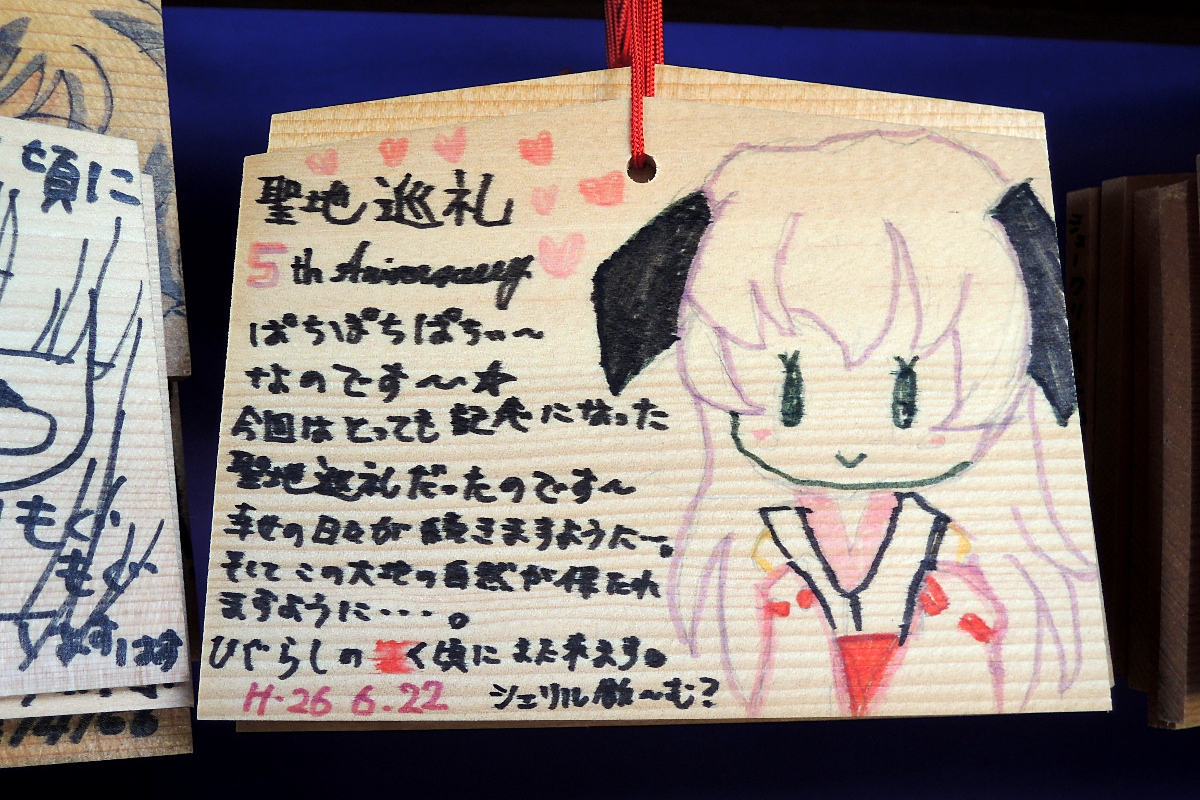 聖地巡礼
5th Aniversary
ぱちぱちぱちぃ〜
なのです〜☆
今回はとっても記念になった
聖地巡礼だったのです〜
幸せの日々が続きますようにー。
そしてこの大地の自然が保たれ
ますように・・・。
ひぐらしのなく頃にまた来ます。
H・26 6.22
シェリル飲〜む?
頃に
もぐ
もぐ
ますはす